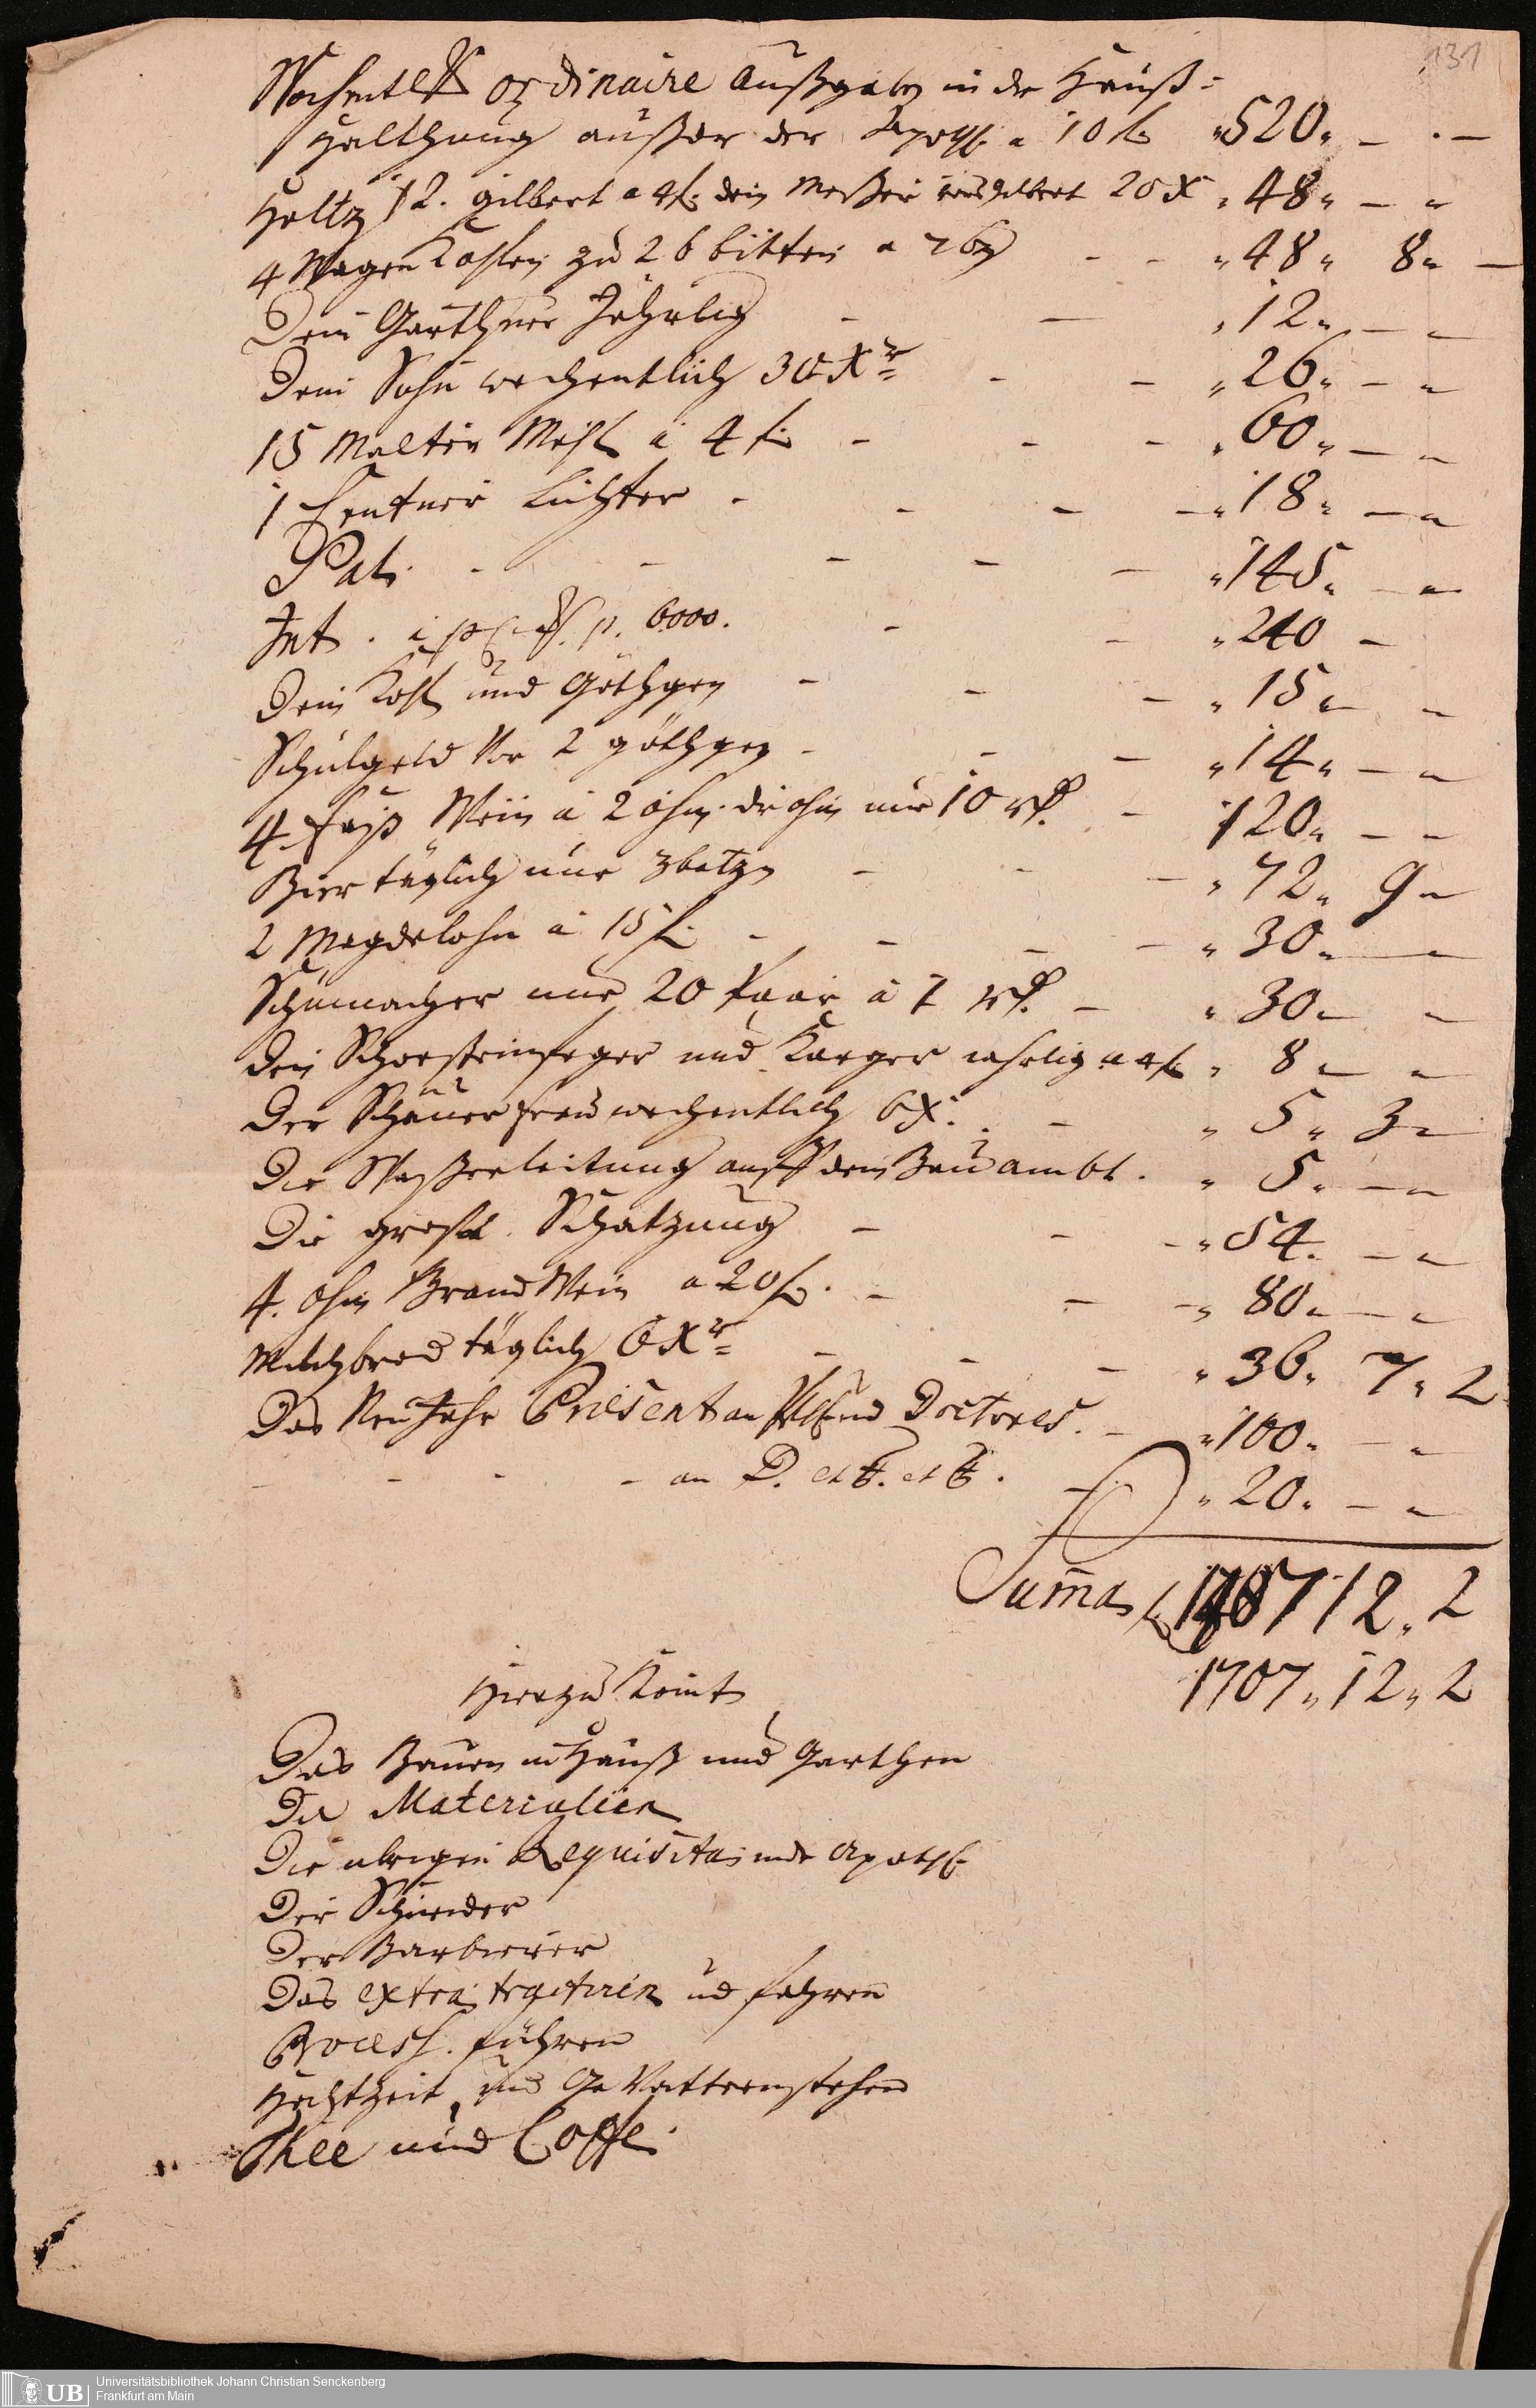 131
Wochentl. ordinaire Außgaben in der Hauß=
Halthung außer der Apoth. a 10 fl. „ 520 „ — . —
Holtz 12. gilbert a 4 fl. dem Meßer 20 X „ 48 „ — „
4 Wagen Kohlen zu 26 bitten a 7 bz - - „ 48 „ 8 „ —
Dem Garthner Jahrlig - — „ 12 „ — „
Dem Sohn wochentlich 30 Xr - - „ 26 „ — „
15 Malter Mehl a 4 fl. - - - „ 60 „ — „
1 Centner Lichter - - - - „ 18 „ — „
Pat. - - - - - „ 145 „ — „
Int. 6000. - - „ 240 —
Dem und Göthgen - - - „ 15 „ „
Schulgeld vor 2 göthgen - - - „ 14 „ — „
4. Faß Wein a 2 ohm. die ohm nur 10 rth. - „ 120 „ — „
Bier täglich nur 3 batzen - - - „ 72 „ 9 „
2 Magdelohn a 15 fl. - - - - „ 30 „ — „
Schumacher nur 20 Paar a 1 rth. - „ 30 „ „
Dem Schorsteinfeger und Karger jahrlig a 4 fl. „ 8 „ „
Der Scheuer frau wochentlich 6 X. - „ 5 „ 3 „
Die Waßerleitung auff dem Bau ambt. „ 5 „ — „
Die große Schatzung - - - „ 54 „ — „
4. ohm Brand Wein a 20 fl. - - - „ 80 „ — „
Milchbrod täglich 6 Xr - - - „ 36 „ 7 „ 2
Das Neu Jahr Present an und Doctores. - „ 100 „ — „
- - - an D. et et . - „ 20 „ — „
Summa fl. 1707 12 „ 2
1707 „ 12 „ 2
Hierzu Komt
Das Bauen im Hauß und Garthen
Die Materialien
Die ubrigen Requisita in der Apoth.
Der Schneider
Der Barbierer
Das extra tractiren ud fahren
Process. führen
Hochtzeit und Ge Vatternstehen
Thee und Coffe.
UB Universitätsbibliothek Johann Christian Senckenberg
Frankfurt am Main